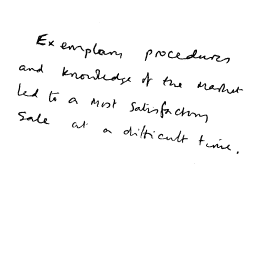 Exemplary procedures
and knowledge of the market
led to a most satisfactory
sale at a difficult time.